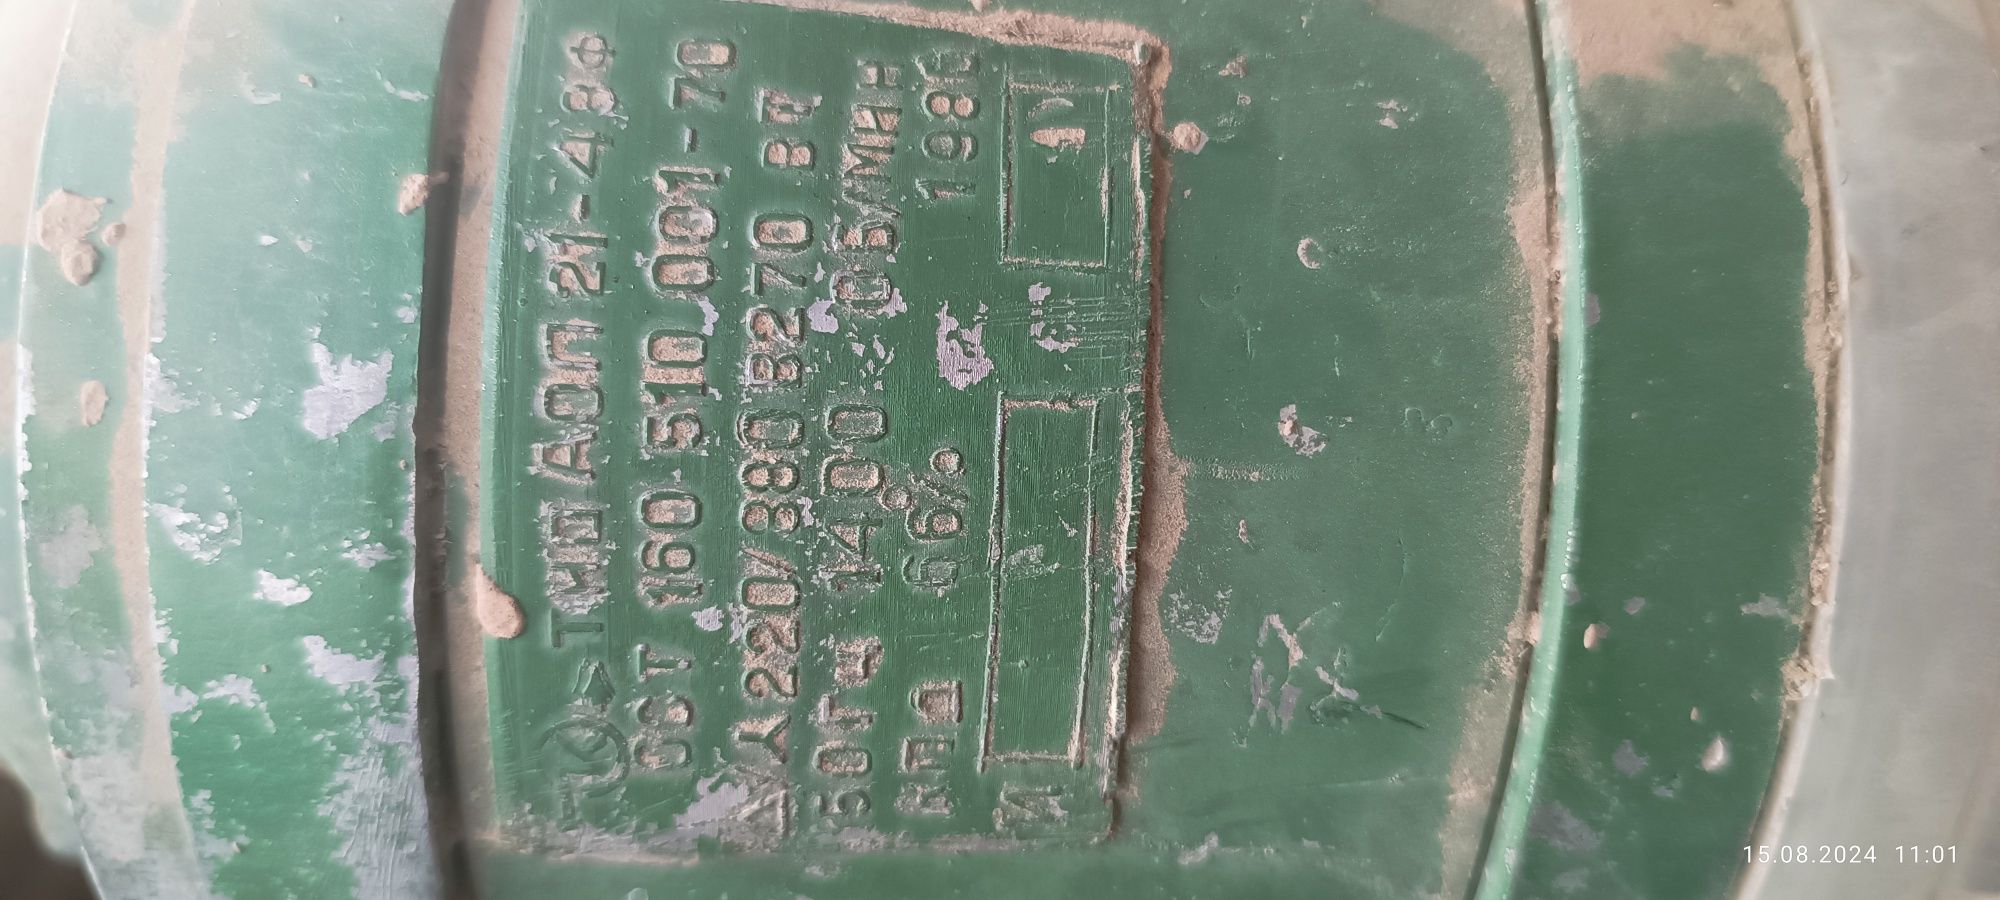 ТИП АОЛ 21-4 ВФ
ОСТ 160.510.001-70
△/Y 220/380 В 270 ВТ
50 ГЦ 1400 ОБ/МИН
КПД 66% 1986
15.08.2024 11:01